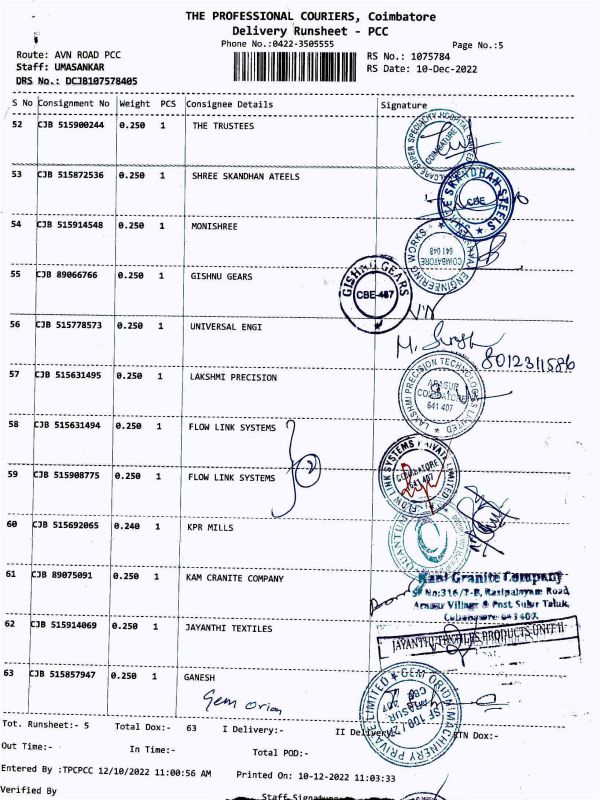 THE PROFESSIONAL COURIERS, Coimbatore
Delivery Runsheet - PCC
Phone No.:0422-3505555
Page No.:5
Route: AVN ROAD PCC
RS No.: 1075784
Staff: UMASANKAR
RS Date: 10-Dec-2022
DRS No.: DCJB107578405
S No Consignment No Weight PCS Consignee Details Signature
52 CJB 515900244 0.250 1 THE TRUSTEES
53 CJB 515872536 0.250 1 SHREE SKANDHAN ATEELS
54 CJB 515914548 0.250 1 MONISHREE
55 CJB 89066766 0.250 1 GISHNU GEARS
GISHNU GEARS
CBE-407
56 CJB 515778573 0.250 1 UNIVERSAL ENGI
8012311586
57 CJB 515631495 0.250 1 LAKSHMI PRECISION
LAKSHMI PRECISION TECHNOLOGIES LIMITED
ARASUR
COIMBATORE
641 407
58 CJB 515631494 0.250 1 FLOW LINK SYSTEMS
59 CJB 515908775 0.250 1 FLOW LINK SYSTEMS
2
FLOW LINK SYSTEMS PRIVATE LIMITED
COIMBATORE
641 407
60 CJB 515692065 0.240 1 KPR MILLS
QUANTUM
61 CJB 89075091 0.250 1 KAM CRANITE COMPANY
Kani Granite Company
SF No:316/7-B, Rasipalayam Road,
Arasur Village & Post, Sulur Taluk,
Coimbatore-641407.
62 CJB 515914069 0.250 1 JAYANTHI TEXTILES
JAYANTHI TEXTILES PRODUCTS UNIT II
63 CJB 515857947 0.250 1 GANESH
Gem Orion
GEM ORION MACHINERY PRIVATE LIMITED
Tot. Runsheet:- 5 Total Dox:- 63 I Delivery:- II Delivery:- RTN Dox:-
Out Time:- In Time:- Total POD:-
Entered By :TPCPCC 12/10/2022 11:00:56 AM Printed On: 10-12-2022 11:03:33
Verified By
Staff Signature